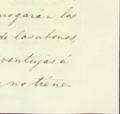 arrogarán los
de los abonos,
ventajas á
no tiene